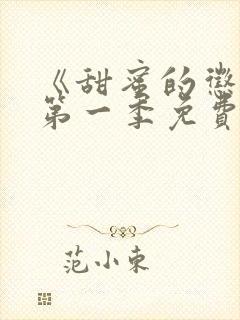 《甜蜜的惩
第一季免费
范小东